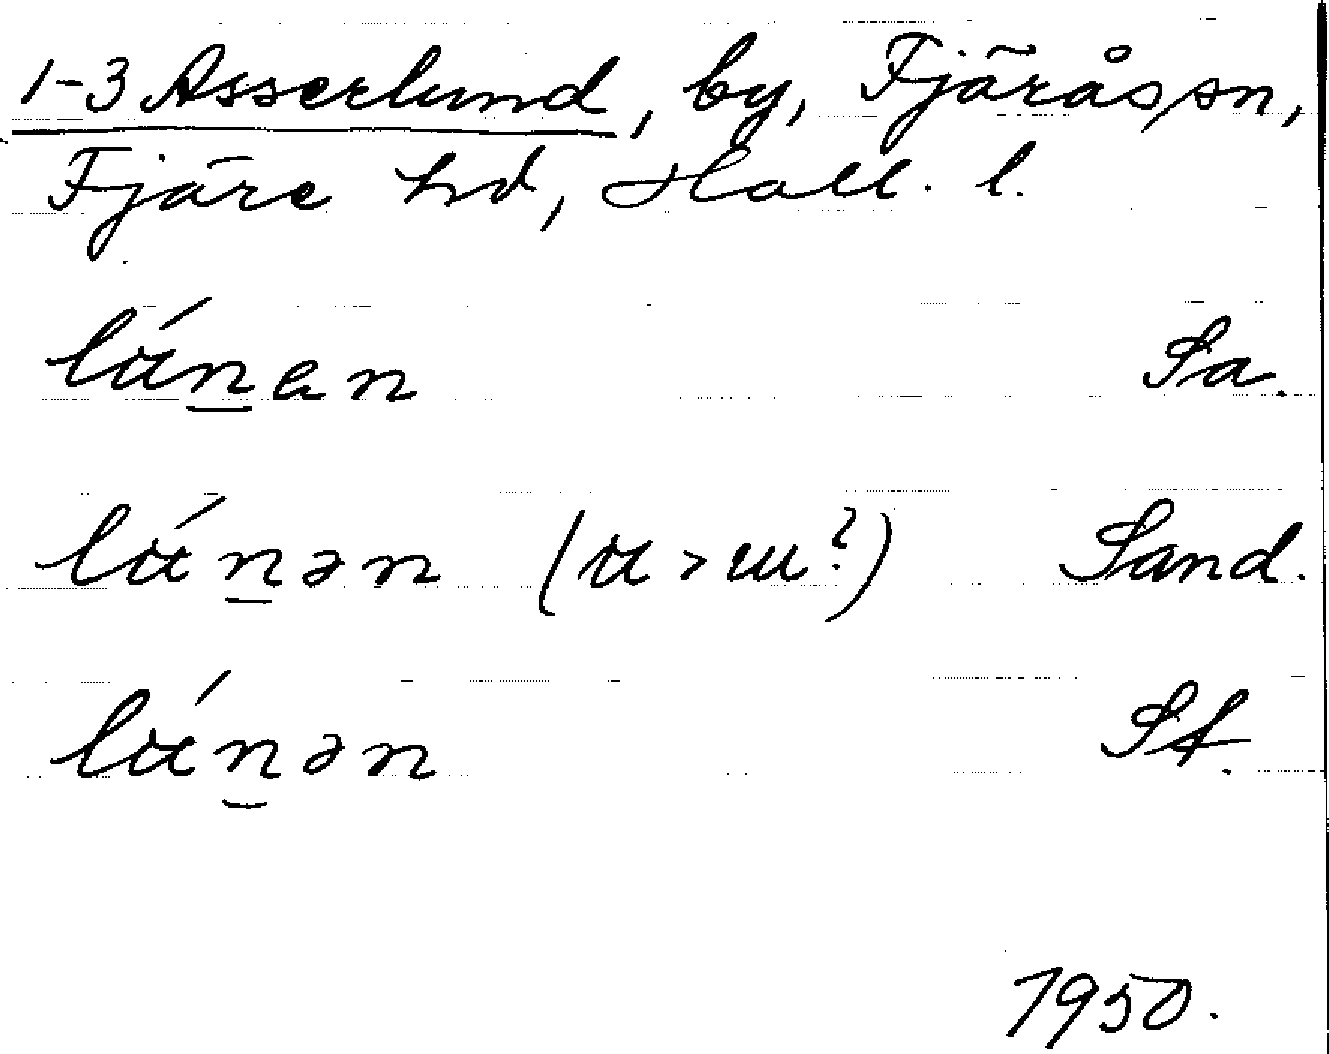 1-3 Asserlund, by, Fjärås sn,
Fjäre hd, Hall. l.
lúnan Sa.
lúnən (u > ɯ?) Sand.
lúnən Sf.
1950.